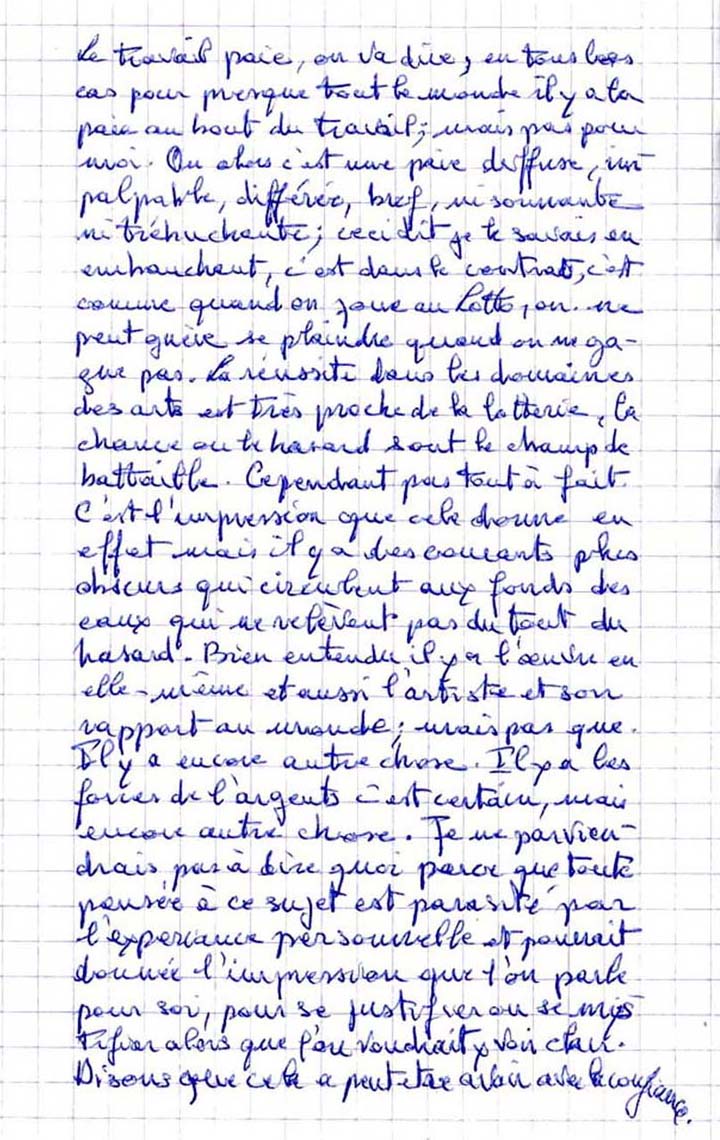 Le travail paie, on va dire, en tous les
cas pour presque tout le monde il y a la
paie au bout du travail; mais pas pour
moi. Ou alors c'est une paie diffuse, im
palpable, différée, bref, ni sonnante
ni trébuchante; ceci dit je le savais en
embauchant, c'est dans le contrat, c'est
comme quand on joue au Lotto, on ne
peut guère se plaindre quand on ne ga-
gne pas. La réussite dans les domaines
des arts est très proche de la lotterie, la
chance ou le hasard sont le champ de
battaille. Cependant pas tout à fait.
C'est l'impression que cela donne en
effet mais il y a des courants plus
obscurs qui circulent aux fonds des
eaux qui ne relèvent pas du tout du
hasard. Bien entendu il y a l'œuvre en
elle-même et aussi l'artiste et son
rapport au monde; mais pas que.
Il y a encore autre chose. Il y a les
forces de l'argents c'est certain, mais
encore autre chose. Je ne parvien-
drais pas à dire quoi parce que toute
pensée à ce sujet est parasité par
l'experiance personnelle et pourrait
donnée l'impression que l'on parle
pour soi, pour se justifier ou se mys
tifier alors que l'on voudrait y voir clair.
Disons que cela a peut etre avoir avec la confiance.